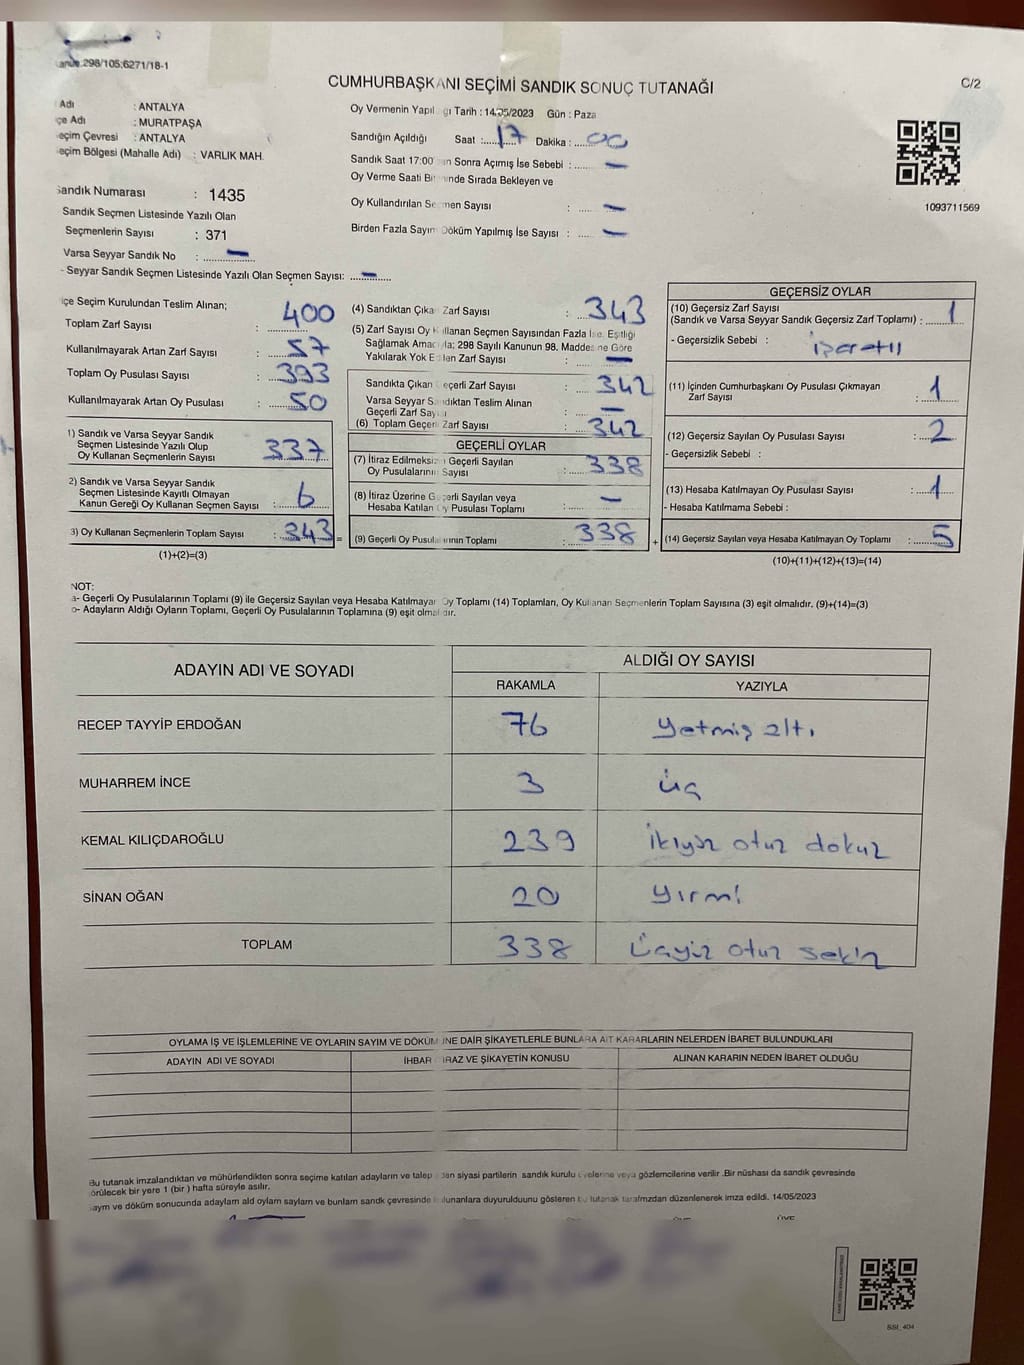 298/105;6271/18-1
CUMHURBAŞKANI SEÇİMİ SANDIK SONUÇ TUTANAĞI
C/2
Adı : ANTALYA
çe Adı : MURATPAŞA
eçim Çevresi : ANTALYA
eçim Bölgesi (Mahalle Adı) : VARLIK MAH.
Sandık Numarası : 1435
Sandık Seçmen Listesinde Yazılı Olan
Seçmenlerin Sayısı : 371
Varsa Seyyar Sandık No : —
- Seyyar Sandık Seçmen Listesinde Yazılı Olan Seçmen Sayısı: —
Oy Vermenin Yapıl gı Tarih : 14/05/2023 Gün : Paza
Sandığın Açıldığı Saat : 17 Dakika : 00
Sandık Saat 17:00 an Sonra Açımış İse Sebebi : —
Oy Verme Saati Bi inde Sırada Bekleyen ve
Oy Kullandırılan Se men Sayısı : —
Birden Fazla Sayım Döküm Yapılmış İse Sayısı : —
1093711569
içe Seçim Kurulundan Teslim Alınan;
Toplam Zarf Sayısı : 400
Kullanılmayarak Artan Zarf Sayısı : 57
Toplam Oy Pusulası Sayısı : 393
Kullanılmayarak Artan Oy Pusulası : 50
1) Sandık ve Varsa Seyyar Sandık
Seçmen Listesinde Yazılı Olup
Oy Kullanan Seçmenlerin Sayısı 337
2) Sandık ve Varsa Seyyar Sandık
Seçmen Listesinde Kayıtlı Olmayan
Kanun Gereği Oy Kullanan Seçmen Sayısı : 6
3) Oy Kullanan Seçmenlerin Toplam Sayısı : 343 =
(1)+(2)=(3)
(4) Sandıktan Çıka Zarf Sayısı : 343
(5) Zarf Sayısı Oy K llanan Seçmen Sayısından Fazla İse, Eşitliği
Sağlamak Amac la; 298 Sayılı Kanunun 98. Maddesine Göre
Yakılarak Yok E ilen Zarf Sayısı : —
Sandıkta Çıkan Geçerli Zarf Sayısı : 342
Varsa Seyyar S ndıktan Teslim Alınan
Geçerli Zarf Sayı ı : —
(6) Toplam Geçer Zarf Sayısı : 342
GEÇERLİ OYLAR
(7) İtiraz Edilmeksiz Geçerli Sayılan
Oy Pusulalarının Sayısı : 338
(8) İtiraz Üzerine G çerli Sayılan veya
Hesaba Katılan Oy Pusulası Toplamı : —
(9) Geçerli Oy Pusula arının Toplamı : 338 +
GEÇERSİZ OYLAR
(10) Geçersiz Zarf Sayısı
(Sandık ve Varsa Seyyar Sandık Geçersiz Zarf Toplamı) : 1
- Geçersizlik Sebebi : işaretli
(11) İçinden Cumhurbaşkanı Oy Pusulası Çıkmayan
Zarf Sayısı : 1
(12) Geçersiz Sayılan Oy Pusulası Sayısı : 2
- Geçersizlik Sebebi :
(13) Hesaba Katılmayan Oy Pusulası Sayısı : 1
- Hesaba Katılmama Sebebi :
(14) Geçersiz Sayılan veya Hesaba Katılmayan Oy Toplamı : 5
(10)+(11)+(12)+(13)=(14)
NOT:
a- Geçerli Oy Pusulalarının Toplamı (9) ile Geçersiz Sayılan veya Hesaba Katılmayar Oy Toplamı (14) Toplamları, Oy Kullanan Seçmenlerin Toplam Sayısına (3) eşit olmalıdır. (9)+(14)=(3)
b- Adayların Aldığı Oyların Toplamı, Geçerli Oy Pusulalarının Toplamına (9) eşit olmal dır.
ADAYIN ADI VE SOYADI
ALDIĞI OY SAYISI
RAKAMLA YAZIYLA
RECEP TAYYİP ERDOĞAN 76 Yetmiş altı
MUHARREM İNCE 3 üç
KEMAL KILIÇDAROĞLU 239 ikiyüz otuz dokuz
SİNAN OĞAN 20 Yirmi
TOPLAM 338 Üçyüz otuz sekiz
OYLAMA İŞ VE İŞLEMLERİNE VE OYLARIN SAYIM VE DÖKÜM İNE DAİR ŞİKAYETLERLE BUNLARA AİT KARARLARIN NELERDEN İBARET BULUNDUKLARI
ADAYIN ADI VE SOYADI İHBAR İRAZ VE ŞİKAYETİN KONUSU ALINAN KARARIN NEDEN İBARET OLDUĞU
Bu tutanak imzalandıktan ve mühürlendikten sonra seçime katılan adayların ve talep den siyasi partilerin sandık kurulu üyelerine veya gözlemcilerine verilir .Bir nüshası da sandık çevresinde
görülecek bir yere 1 (bir ) hafta süreyle asılır.
aym ve döküm sonucunda adaylam ald oylam saylam ve bunlam sandk çevresinde bulunanlara duyurulduunu gösteren bu tutanak tarafmzdan düzenlenerek imza edildi. 14/05/2023
ÜYE ÜYE
SSI_404